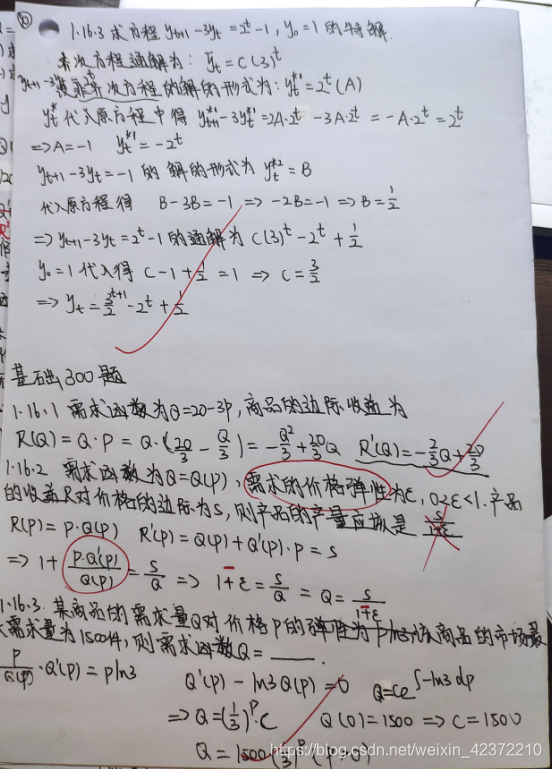 ⑩
1.16.3 求方程 yₜ₊₁-3yₜ=2ᵗ-1, y₀=1 的特解.
齐次方程通解为: ȳₜ=C(3)ᵗ
yₜ₊₁-3yₜ 非齐次方程的解的形式为: yₜ*¹=2ᵗ(A)
yₜ* 代入原方程中得 yₜ₊₁*¹-3yₜ*¹=2A·2ᵗ-3A·2ᵗ=-A·2ᵗ=2ᵗ
⇒A=-1 yₜ*¹=-2ᵗ
yₜ₊₁-3yₜ=-1 的解的形式为 yₜ*²=B
代入原方程得 B-3B=-1 ⇒ -2B=-1 ⇒ B=1/2
⇒ yₜ₊₁-3yₜ=2ᵗ-1 的通解为 C(3)ᵗ-2ᵗ+1/2
y₀=1 代入得 C-1+1/2=1 ⇒ C=3/2
⇒ yₜ=3ᵗ⁺¹/2-2ᵗ+1/2
基础300题
1.16.1 需求函数为Q=20-3P, 商品的边际收益为
R(Q)=Q·P=Q·(20/3-Q/3)=-Q²/3+20/3Q R'(Q)=-2/3Q+20/3
1.16.2 需求函数为Q=Q(P), 需求的价格弹性为ε, 0<ε<1. 产品
的收益R对价格的边际为s, 则产品的产量应该是 s/(1+ε)
R(P)=P·Q(P) R'(P)=Q(P)+Q'(P)·P=s
⇒ 1+P·Q'(P)/Q(P)=s/Q ⇒ 1+ε=s/Q = Q=s/(1+ε)
1.16.3. 某商品的需求量Q对价格P的弹性为Pln3, 该商品的市场最
大需求量为1500件, 则需求函数Q=____.
P/Q(P)·Q'(P)=Pln3 Q'(P)-ln3Q(P)=0 Q=Ce^∫-ln3dp
⇒ Q=(1/3)ᴾ·C Q(0)=1500 ⇒ C=1500
Q=1500(1/3)ᴾ (P>0)
https://blog.csdn.net/weixin_42372210